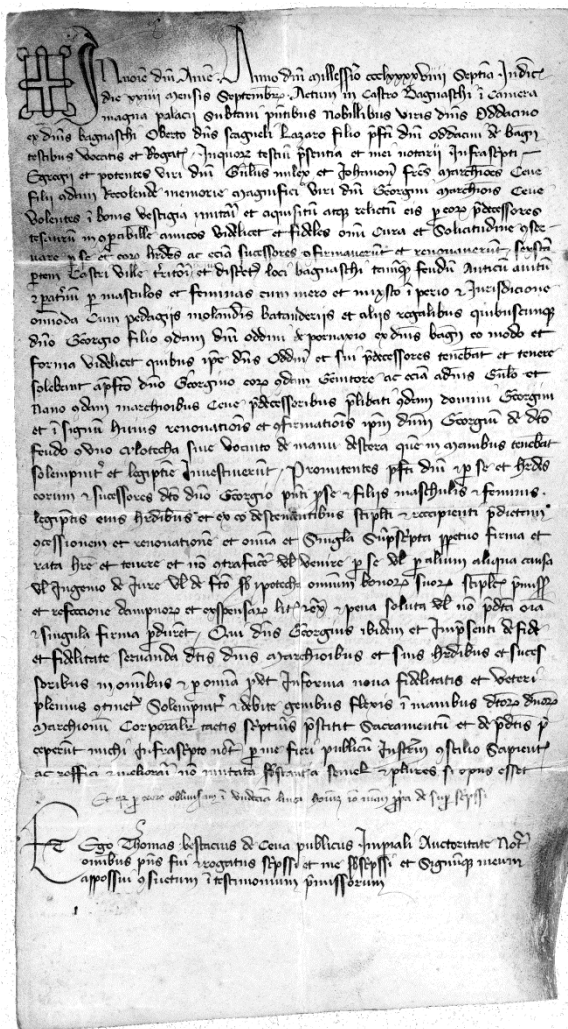 In nomine dñi Amē. Anno dñi Millessīo ccclxxxxviiii Septīa Indic̄
die xxiiii mensis Septembr̄ Actum in Castro Bagnaschi ī Camera
magna palacii Subtani p̄ntibus Nobillibus viris dñis Oddacino
ex dñis bagnaschi Oberto dñs scagneli Lazaro filio p̄fti dñi Oddacini de bagn̄
testibus vocatis et Rogat̄. Inquor̄ testiū p̄sentia et mei notarii Infrasēpti
Egregii et potentes viri dñi Gullus milex et Johannon frēs Marchiōes Ceve
filii qdam Recolende memorie magnifici viri dñi Georgini marchiōis Ceve
Volentes ī bonis vestigia imitari et aquisitū atqz relictū eis p eorz p̄decessores
tesaurū inqparabille amicos videlicet et fideles omī Cura et Solicitudine qser
vare p se et eorz hrdēs ac eciā sucessores qfirmaverūt et renovaverūt sextā
ptem Castri ville tr̄itorii et districtus loci bagnaschi tamqz feudū Anticū avitū
et pat̄nū p masculos et feminas cum mero et mixto īperio et Jurisdicione
omoda Cum pedagiis molandis batanderiis et aliis regalibus quibuscumqz
dño Georgio filio qdam dñi Oddini de pornaxio ex dñis bagn̄ eo modo et
forma videlicet quibus ipe dñs Oddin̄ et sui p̄decessores tenebāt et tenere
solebant a p̄fto dño Georgino eorz qdam Genitore ac eciā a dñis Gullo et
Nano qdam marchiōibus Ceve p̄decessoribus p̄libati qdam domini Georgini
et ī signū huius renovatiōis et qfirmatiōis ipm dnm Georgiū de dcto
feudo q uno Cilotecha sive Vocinto de manu destera que in manibus tenebāt
solempnit̄ et legiptie Investiverūt. Promitentes p̄fti dñi p se et hrdēs
eorum et sucessores dcto dño Georgio p̄nti p se et filiis masculis et feminis
legiptīs eius hrdibus et ex eo descendentibus stiplti et recipienti p̄dictam
qcessionem et renovationē et omīa et Singla Sup̄scpta ppetuo firma et
rata hre et tenere et nō qtrafacē vl venire p se vl p alium aliqua causa
vl Ingenio de Jure vl de fcto sb ipotecha omniū bonorz suorz stiplex p̄miss̄
et refeccione dampnorz et expensarz lit̄ et pena soluta vl non p̄dcta omīa
et singula firma pduret. Qui dñs Georgius ibidem et Inp̄senti de fide
et fidelitate servanda dctis dñis Marchiōibus et suis hrdibus et suces
soribus in omībus et p omīa p̄ut Informa nova fidelitatis et veteri
plenius qtinet̄ Solempnit̄ et debite genibus flexis ī manibus dctorz dñorz
Marchionū Corporalit̄ tactis sc̄ptūis p̄stitit Sacramentū et de p̄dctis p̄
ceperūt michi Infrascpto not̄ p me fieri publicū Instrm̄ qscilio Sapient̄
ac reffici et meliorari nō mutata sbstantia semel et plures si opus esset
Ego Thomas bestacius de Ceva publicus Impiali Auctoritate Not̄
omībus p̄mis fui et rogatus sc̄pssi et me sbsc̄pssi et Signūqz meum
apposui qsuetum ī testimonium p̄missorum